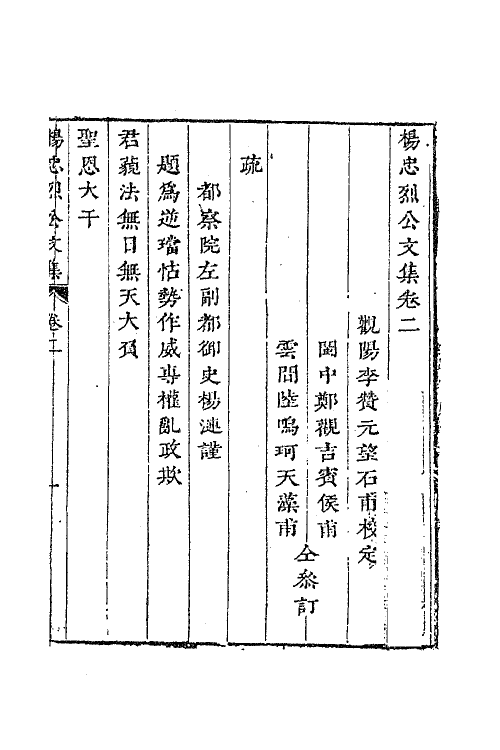 楊忠烈公文集卷二
觀陽李贊元望石甫校定
閩中鄭觀吉賓侯甫
雲間陸鳴珂天藻甫
仝叅訂
疏
都察院左副都御史楊漣謹
題爲逆璫怙勢作威專權亂政欺
君藐法無日無天大負
聖恩大干
楊忠烈公文集
卷二
一